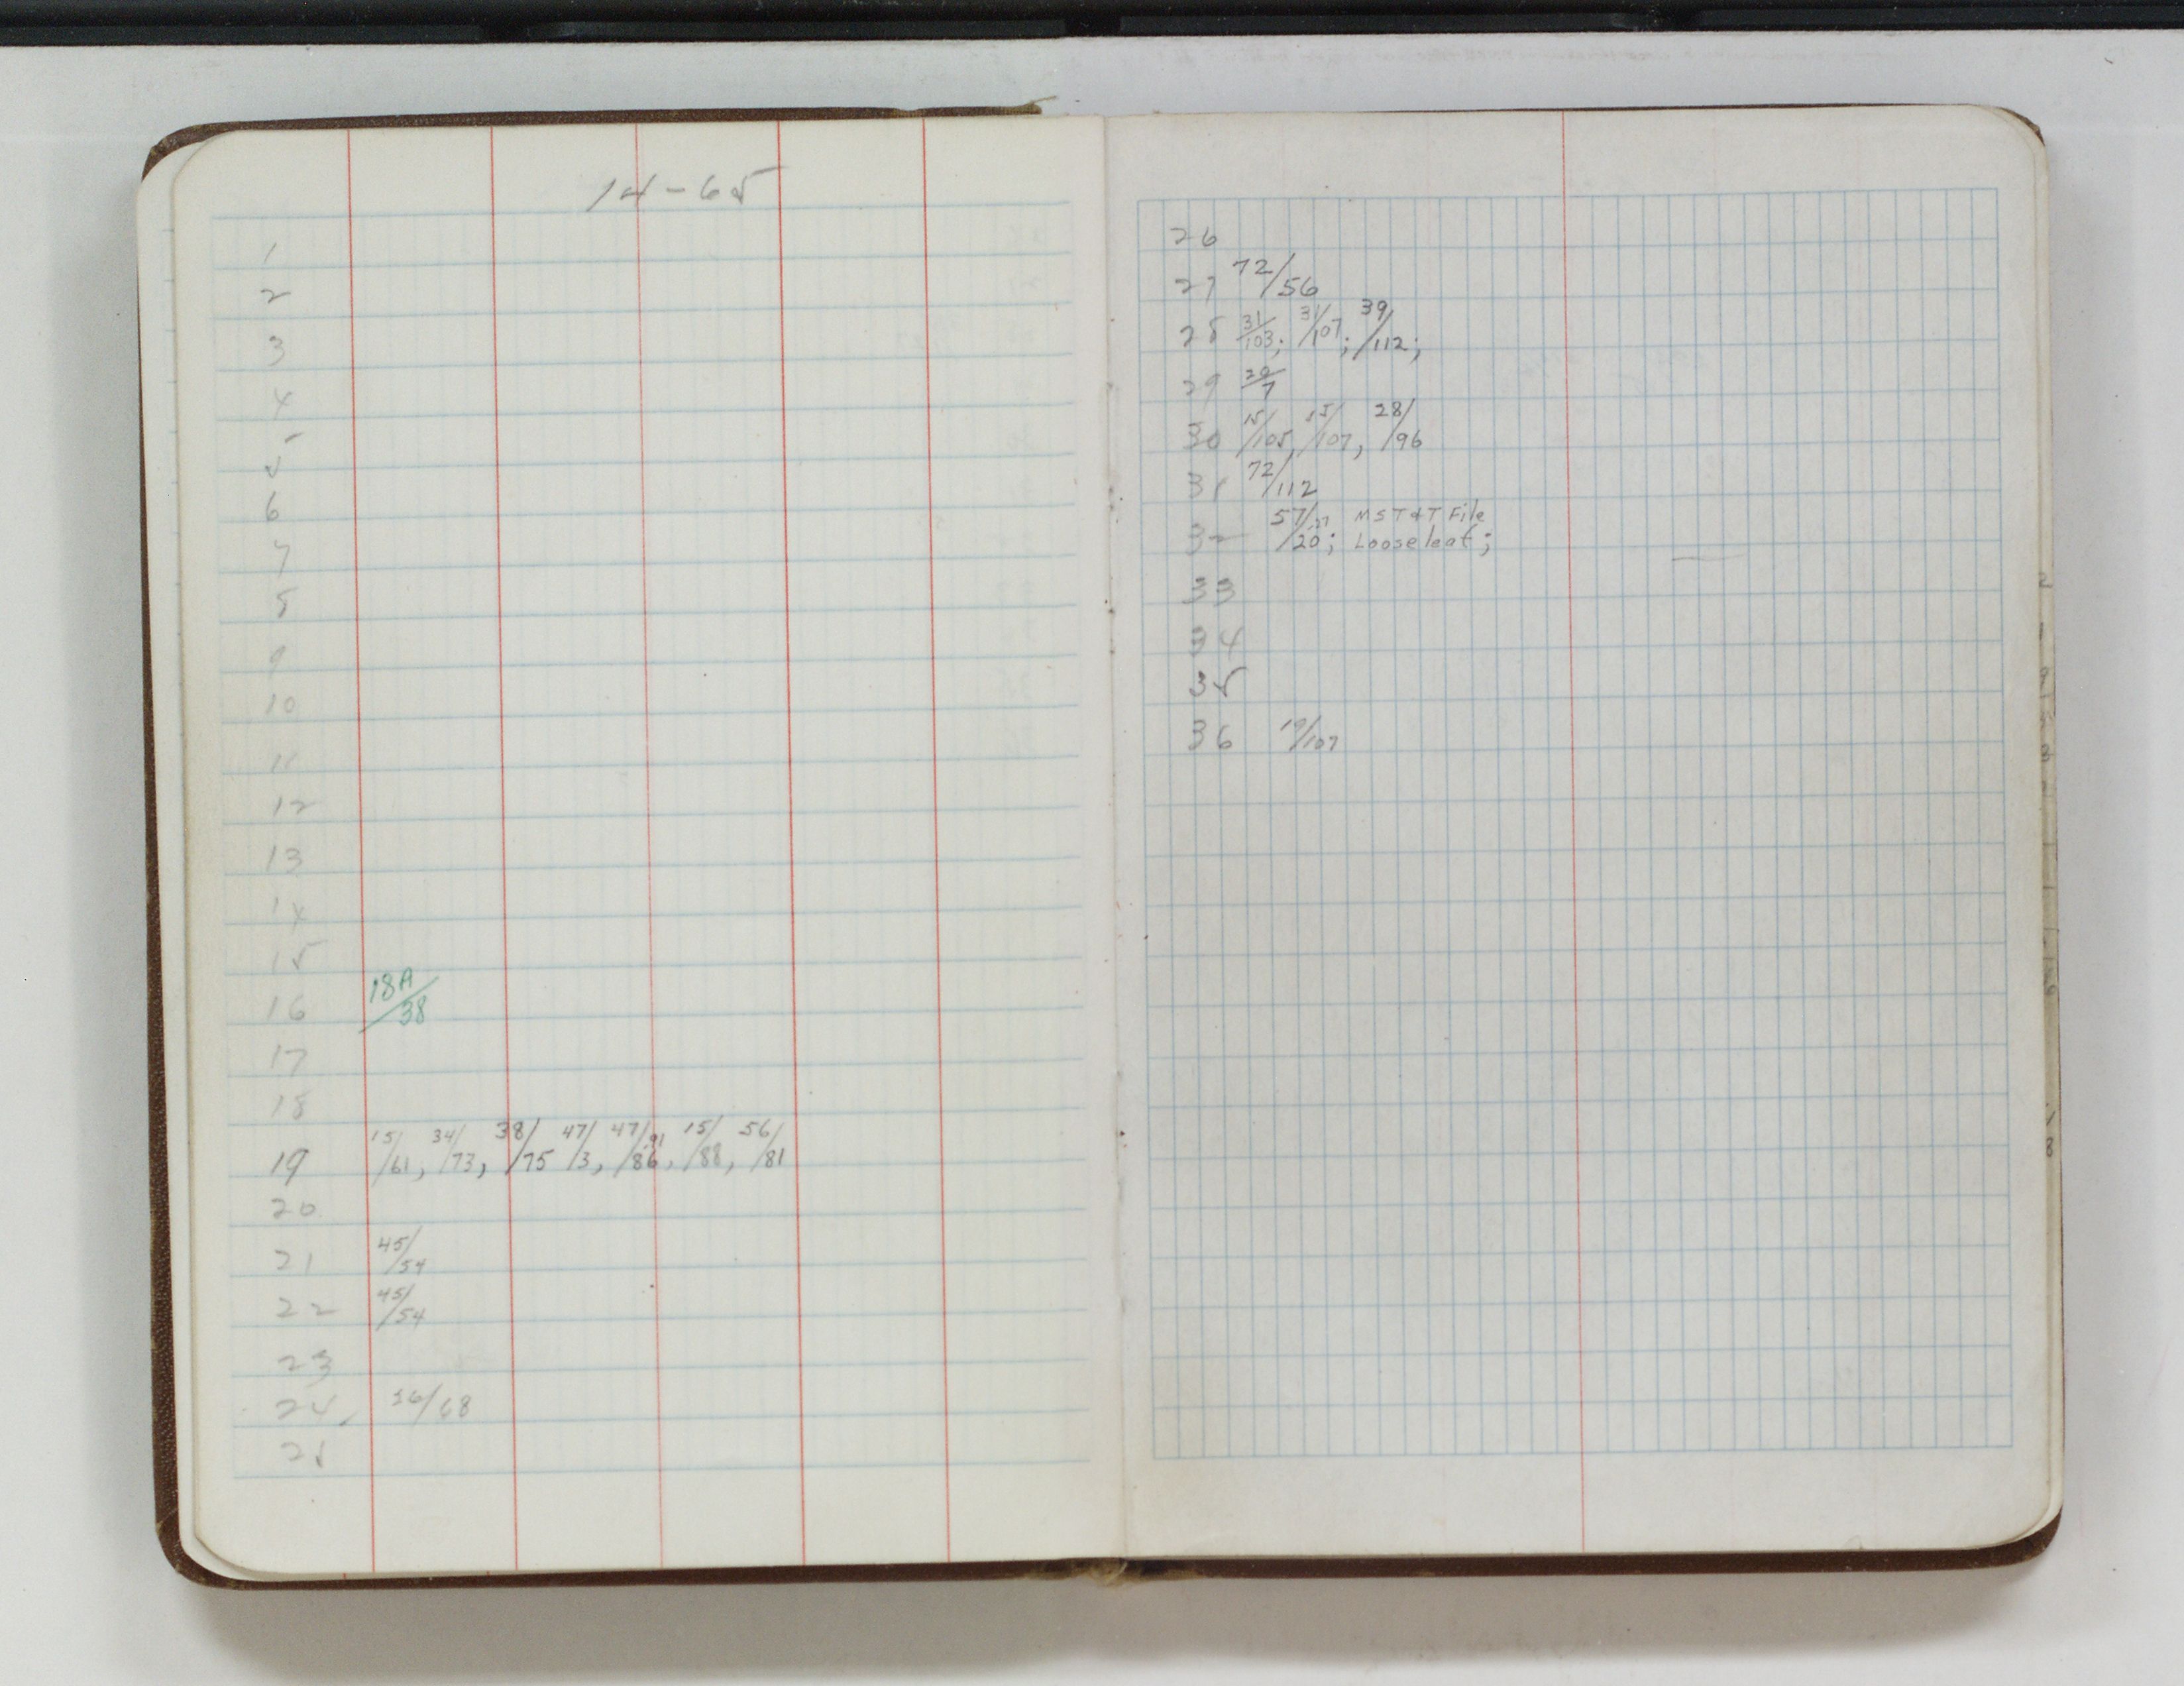 14-65
1
2
3
4
5
6
7
8
9
10
11
12
13
14
15
16 18A/38
17
18
19 15/61, 34/73, 38/75 47/3, 47/86,91, 15/88, 56/81
20
21 45/54
22 45/54
23
24 /68
25
26
27 72/56
28 31/103; 31/107; 39/112;
29
30 15/105, 15/107, 28/96
31 72/112
32 57/20,21; MST&T File
Looseleaf;
33
34
35
36 19/107